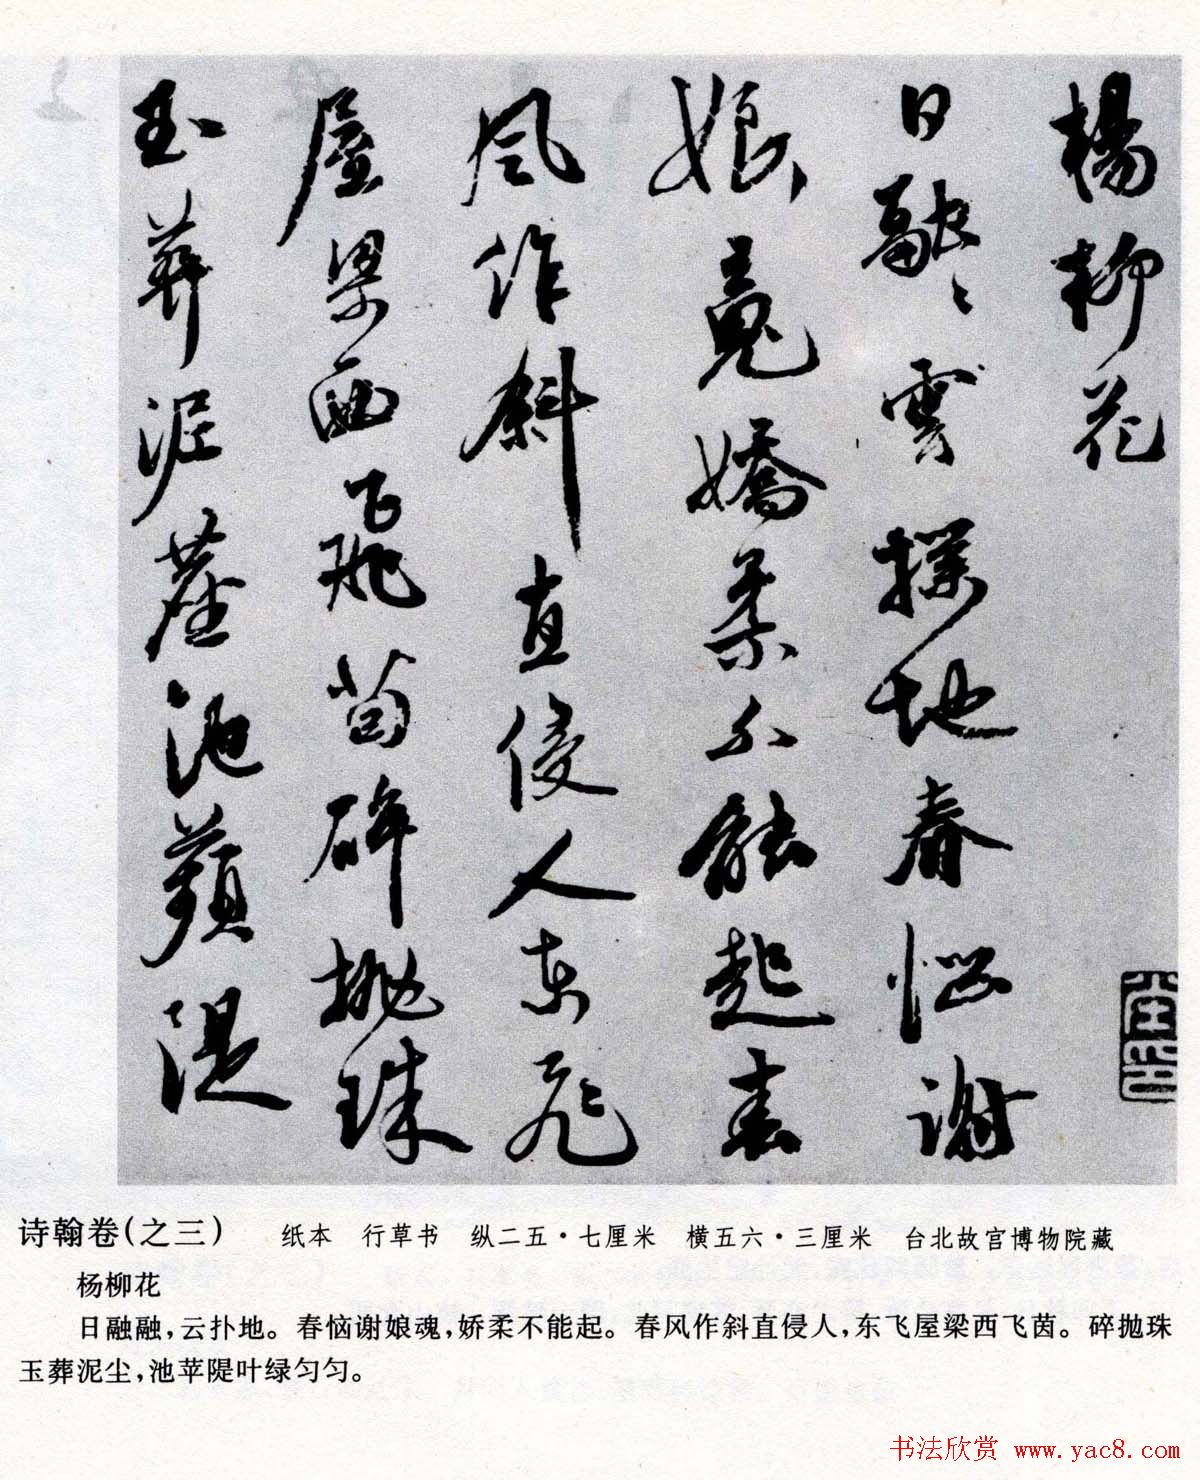 楊柳花
日融〻雲撲地春惱謝
娘魂嬌柔不能起春
風作斜直侵人東飛
屋梁西飛茵碎拋珠
玉葬泥塵池蘋隄
诗翰卷(之三) 纸本 行草书 纵二五·七厘米 横五六·三厘米 台北故宫博物院藏
杨柳花
日融融,云扑地。春恼谢娘魂,娇柔不能起。春风作斜直侵人,东飞屋梁西飞茵。碎抛珠
玉葬泥尘,池苹隄叶绿匀匀。
书法欣赏 www.yac8.com